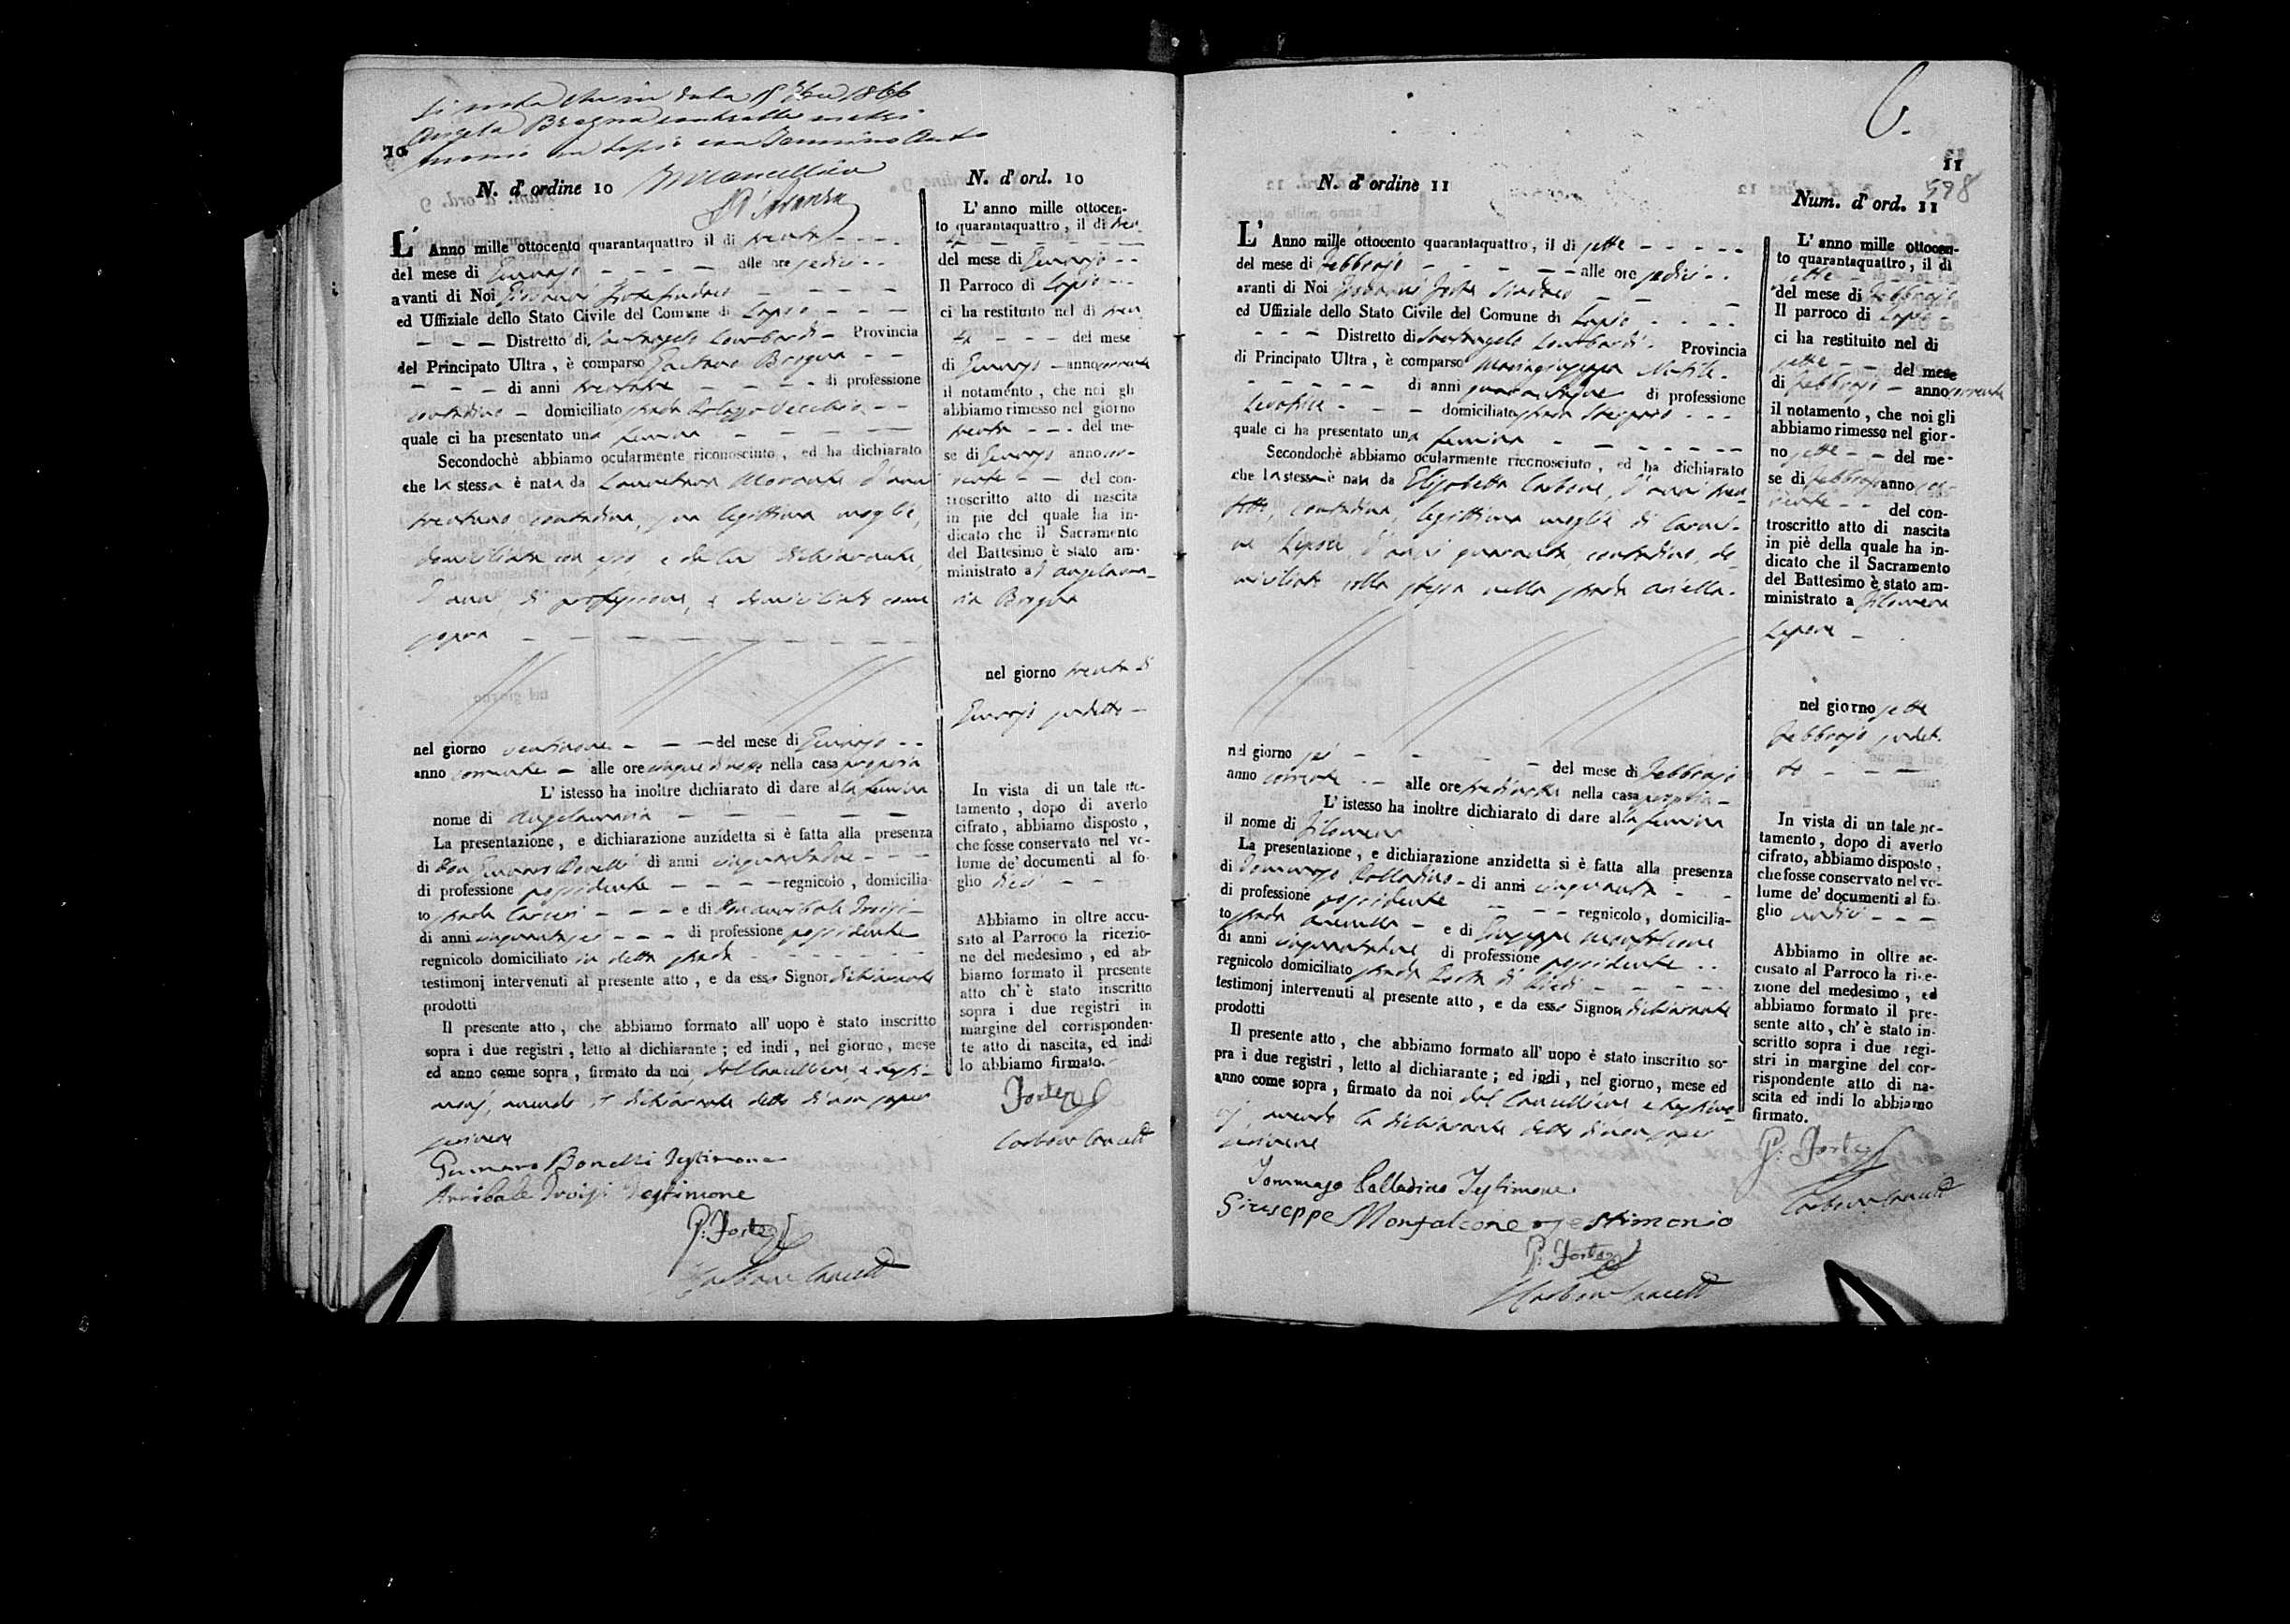 Si nota che in data 15 1866
Angela Bregna matri-
monio in Lapio con
10
N. d' ordine 10
L' Anno mille ottocento quarantaquattro il di trenta
del mese di Gennajo alle ore sedici
avanti di Noi Giovanni Forte Sindaco
ed Uffiziale dello Stato Civile del Comune di Lapio
Distretto di Santangelo Lombardi Provincia
del Principato Ultra, è comparso Gaetano Bregna
di anni di professione
contadino domiciliato strada Palazzo Vecchio
quale ci ha presentato una femina
Secondochè abbiamo ocularmente riconosciuto, ed ha dichiarato
che la stessa è nata da d'anni
trentuno contadina, sua legittima moglie,
domiciliata con esso e da lui dichiarante,
d'anni, di professione, e domiciliato come
sopra
nel giorno ventinove del mese di Gennajo
anno corrente alle ore cinque di notte nella casa propria
L' istesso ha inoltre dichiarato di dare alla femina
nome di Angelamaria
La presentazione, e dichiarazione anzidetta si è fatta alla presenza
di Don Gennaro Bonelli di anni
di professione possidente regnicolo, domicilia-
to strada Carceri e di Don Annibale Troisi
di anni cinquantasei di professione possidente
regnicolo domiciliato in detta strada
testimonj intervenuti al presente atto, e da esso Signor dichiarante
prodotti
Il presente atto, che abbiamo formato all' uopo è stato inscritto
sopra i due registri, letto al dichiarante; ed indi, nel giorno, mese
ed anno come sopra, firmato da noi, dal Cancelliere, e testi-
monj, avendo il dichiarante detto di non sapere
scrivere
Gennaro Bonelli Testimone
Annibale Troisi Testimone
G: Forte
Carbone Cancell
N. d' ord. 10
L' anno mille ottocen-
to quarantaquattro, il di tren-
ta
del mese di Gennajo
Il Parroco di Lapio
ci ha restituito nel di tren
ta del mese
di Gennajo anno corrente
il notamento, che noi gli
abbiamo rimesso nel giorno
trenta del me-
se di Gennajo anno cor-
rente del con-
troscritto atto di nascita
in piè del quale ha in-
dicato che il Sacramento
del Battesimo è stato am-
ministrato ad Angelama-
ria Bregna
nel giorno trenta di
Gennajo sudetto
In vista di un tale no-
tamento, dopo di averlo
cifrato, abbiamo disposto,
che fosse conservato nel vo-
lume de' documenti al fo-
glio dieci
Abbiamo in oltre accu-
sato al Parroco la ricezio-
ne del medesimo, ed ab-
biamo formato il presente
atto ch' è stato inscritto
sopra i due registri in
margine del corrisponden-
te atto di nascita, ed indi
lo abbiamo firmato.
Forte
Carbone Cancell
6.
11
598
N. d' ordine 11
L' Anno mille ottocento quarantaquattro, il di sette
del mese di Febbrajo alle ore sedici
avanti di Noi Giovanni Forte Sindaco
ed Uffiziale dello Stato Civile del Comune di Lapio
Distretto di Santangelo Lombardi Provincia
di Principato Ultra, è comparso Mariagiuseppa
di anni di professione
Levatrice domiciliato strada
quale ci ha presentato una femina
Secondochè abbiamo ocularmente riconosciuto, ed ha dichiarato
che la stessa è nata da Elisabetta Carbone, d'anni tren-
totto, contadina, legittima moglie di Carmi-
ne Lepore, d'anni quaranta, contadino, do-
miciliato colla stessa nella strada Aniella
nel giorno sei del mese di Febbrajo
anno corrente alle ore nella casa propria
L' istesso ha inoltre dichiarato di dare alla femina
il nome di Filomena
La presentazione, e dichiarazione anzidetta si è fatta alla presenza
di Tommaso Palladino di anni cinquanta
di professione possidente regnicolo, domicilia-
to strada e di Giuseppe Monfalcone
di anni di professione possidente
regnicolo domiciliato strada
testimonj intervenuti al presente atto, e da esso Signor dichiarante
prodotti
Il presente atto, che abbiamo formato all' uopo è stato inscritto so-
pra i due registri, letto al dichiarante; ed indi, nel giorno, mese ed
anno come sopra, firmato da noi, dal Cancelliere e testimo-
nj, avendo la dichiarante detto di non saper
scrivere
Tommaso Palladino Testimone
Giuseppe Monfalcone testimonio
G: Forte
Carbone Cancell
Num. d' ord. 11
L' anno mille ottocen-
to quarantaquattro, il di
sette
del mese di Febbrajo
Il parroco di Lapio
ci ha restituito nel di
sette del mese
di Febbrajo anno corrente
il notamento, che noi gli
abbiamo rimesso nel gior-
no sette del me-
se di Febbrajo anno cor-
rente del con-
troscritto atto di nascita
in piè della quale ha in-
dicato che il Sacramento
del Battesimo è stato am-
ministrato a Filomena
Lepore
nel giorno sette
Febbrajo sudet-
to
In vista di un tale no-
tamento, dopo di averlo
cifrato, abbiamo disposto,
che fosse conservato nel vo-
lume de' documenti al fo-
glio undici
Abbiamo in oltre ac-
cusato al Parroco la rice-
zione del medesimo, ed
abbiamo formato il pre-
sente atto, ch' è stato in-
scritto sopra i due regi-
stri in margine del cor-
rispondente atto di na-
scita ed indi lo abbiamo
firmato.
G: Forte
Carbone Cancell